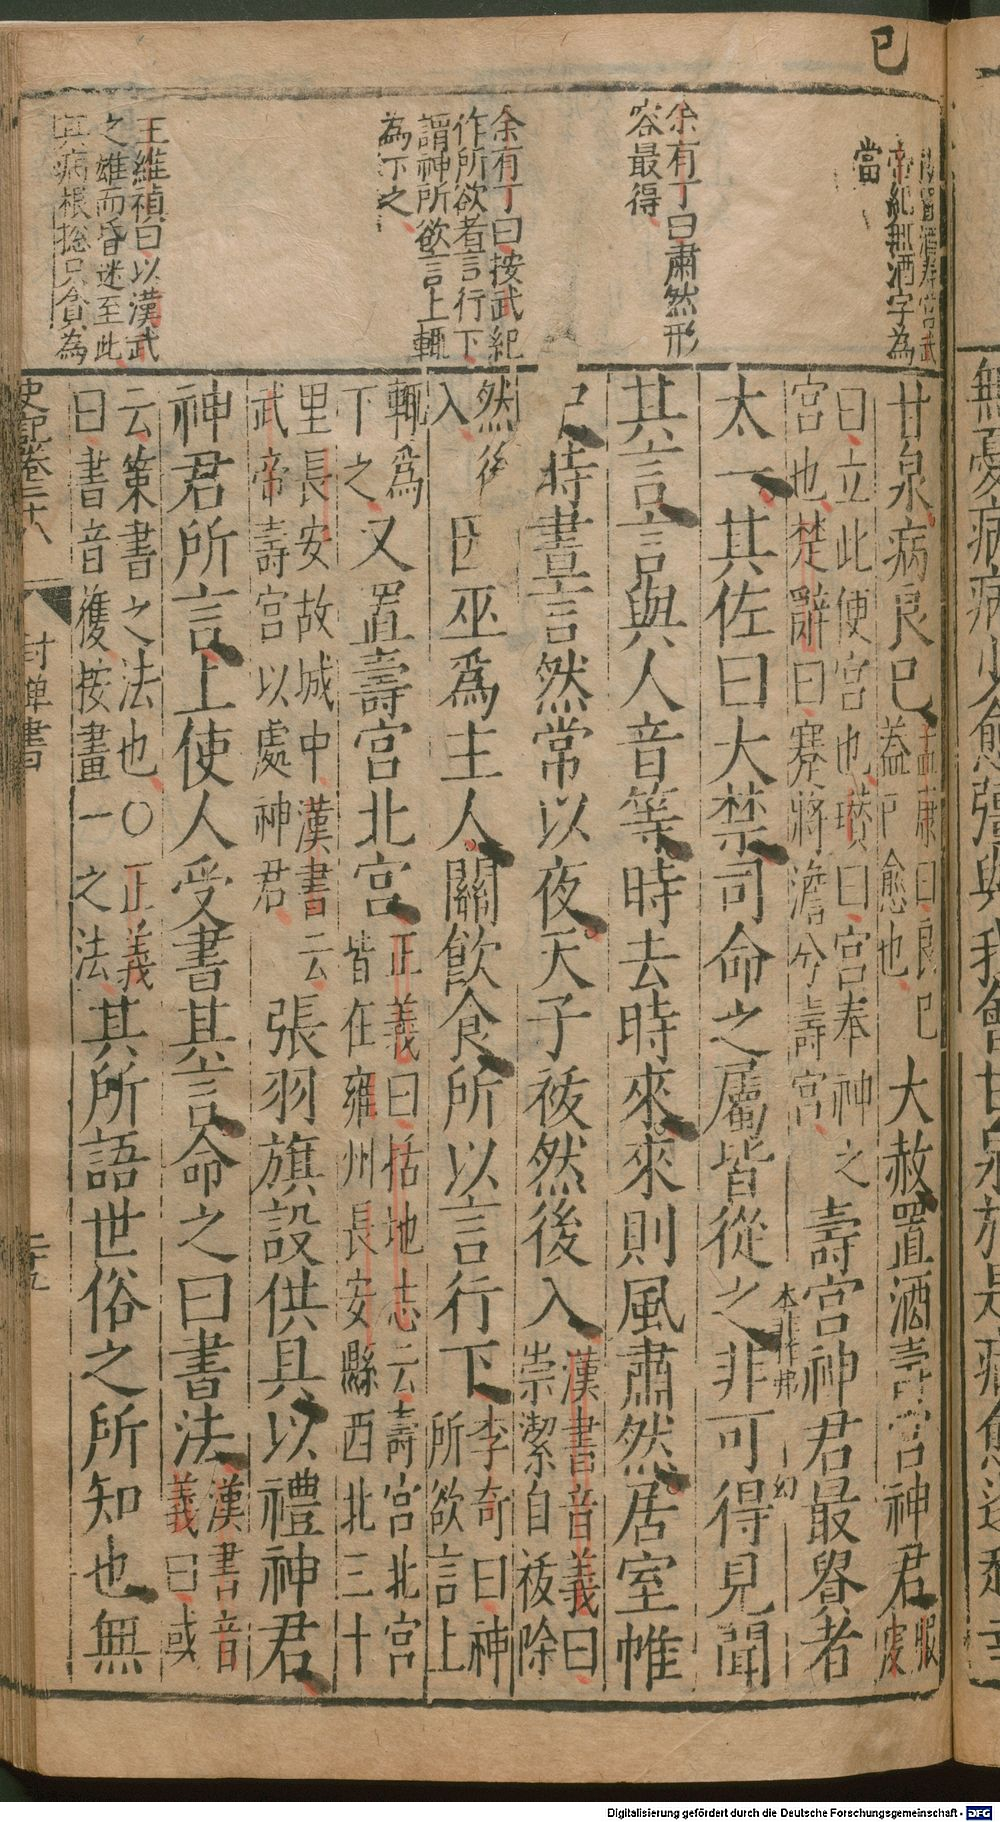 已
置酒壽宮武
帝紀無酒字為
當
余有丁曰肅然形
容最得
余有丁曰按武紀
作所欲者言行下
謂神所欲言上輒
為下之
王維禎曰以漢武
之雄而昏迷至此
其病根總只貪為
無憂病病少愈強與我會甘泉於是病愈遂起幸
甘泉病良已孟康曰良已善已愈也大赦置酒壽宮神君服虔
曰立此便宮也瓚曰宮奉神之宮也楚辭曰蹇將澹兮壽宮壽宮神君最貴者
太一其佐曰大禁司命之屬皆從之本非作弗非可得見聞
其言言與人音等時去時來來則風肅然居室帷
中時晝言然常以夜天子祓然後入漢書音義曰崇潔自祓除
然後入因巫為主人關飲食所以言行下李奇曰神所欲言上
輒為下之又置壽宮北宮正義曰括地志云壽宮北宮皆在雍州長安縣西北三十
里長安故城中漢書云武帝壽宮以處神君張羽旗設供具以禮神君
神君所言上使人受書其言命之曰書法漢書音義曰或
云策書之法也〇正義曰書音獲按畫一之法其所語世俗之所知也無
史記卷二十八
封禪書
二十五
Digitalisierung gefördert durch die Deutsche Forschungsgemeinschaft - DFG